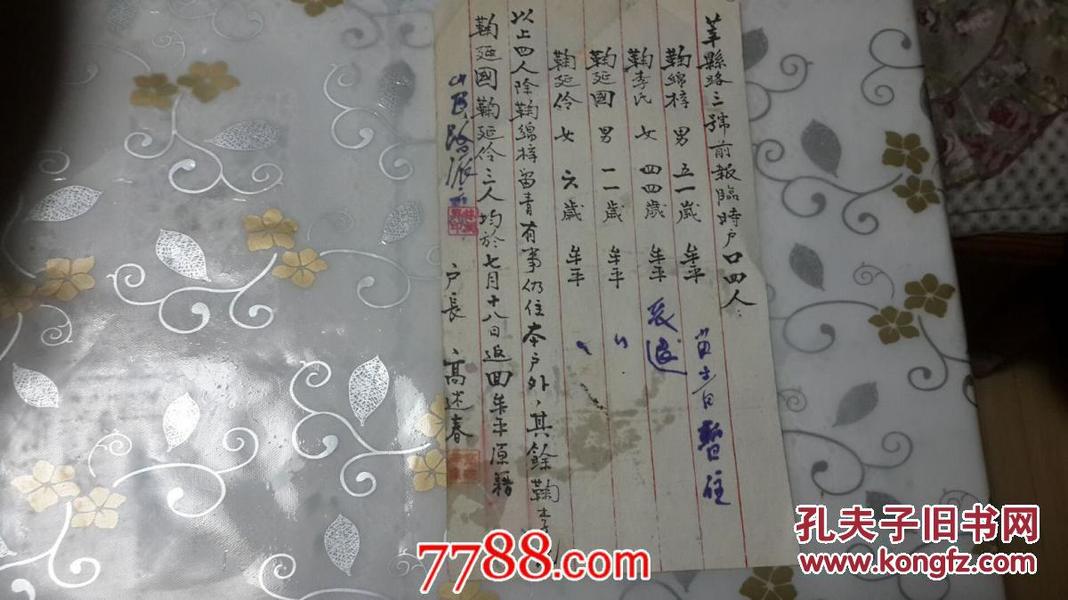 莘縣路三號前報臨時户口四人：
鞠綿梓 男 五一歲 牟平 留青暫住
鞠李氏 女 四四歲 牟平 返
鞠延國 男 一一歲 牟平 〃
鞠延伶 女 六歲 牟平 〃
以上四人除鞠綿梓留青有事仍住本户外，其餘鞠李氏
鞠延國鞠延伶三人均於七月十八日返回牟平原籍
户長 高述春
孔夫子旧书网
www.kongfz.com
7788.com